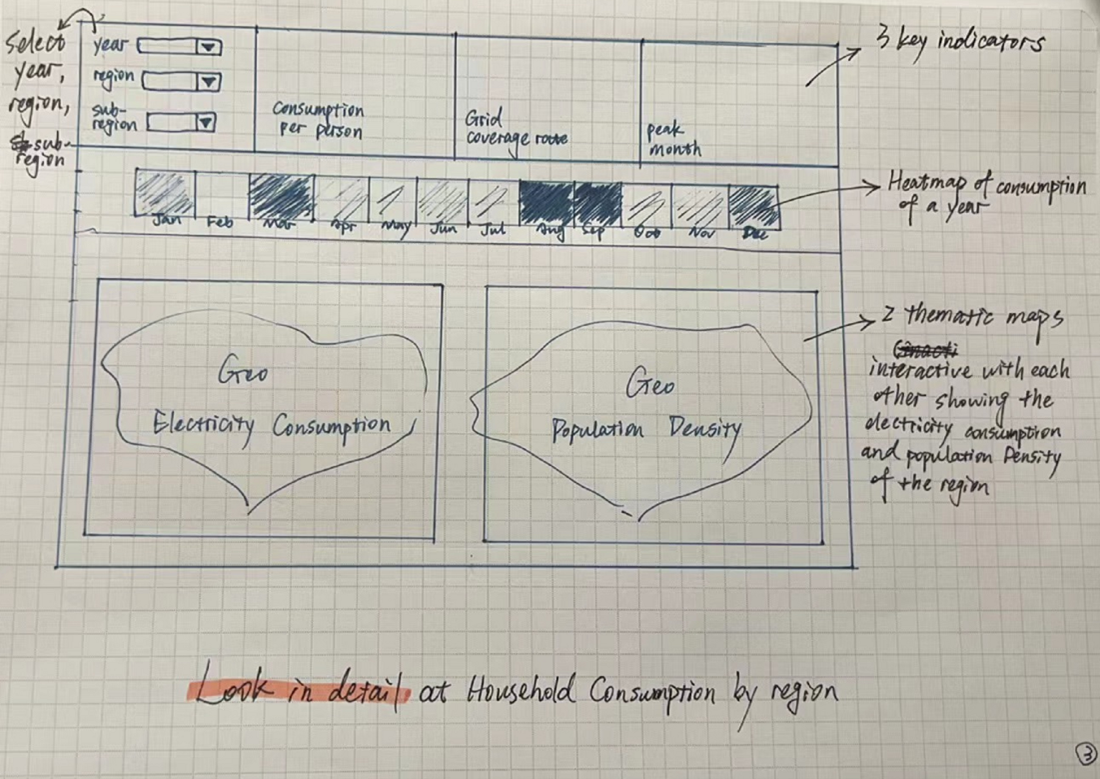 Select
year,
region,
sub-
region
year
region
sub-
region
Consumption
per person
Grid
coverage rate
peak
month
3 key indicators
Jan Feb Mar Apr May Jun Jul Aug Sep Oct Nov Dec
Heatmap of consumption
of a year
Geo
Electricity Consumption
Geo
Population Density
2 thematic maps
interactive with each
other showing the
electricity consumption
and population Density
of the region
Look in detail at Household Consumption by region
3